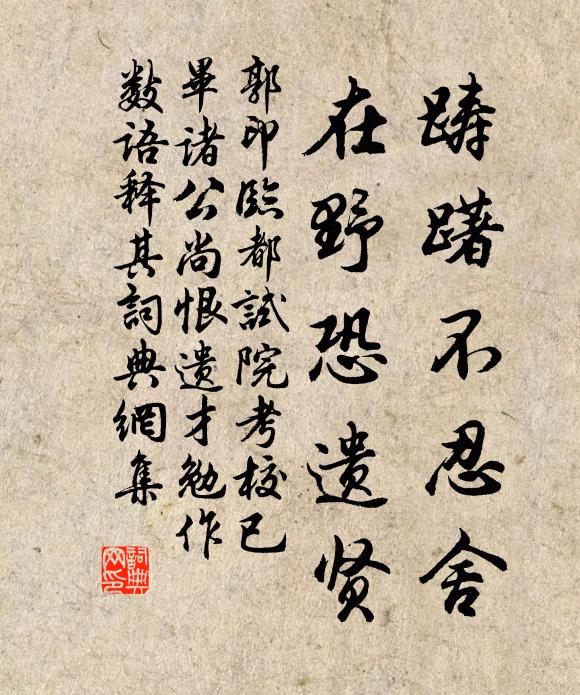 踌躇不忍舍
在野恐遗贤
郭印臨都試院考校已
畢諸公尚恨遗才勉作
数語释其詞典網集
詞典网印